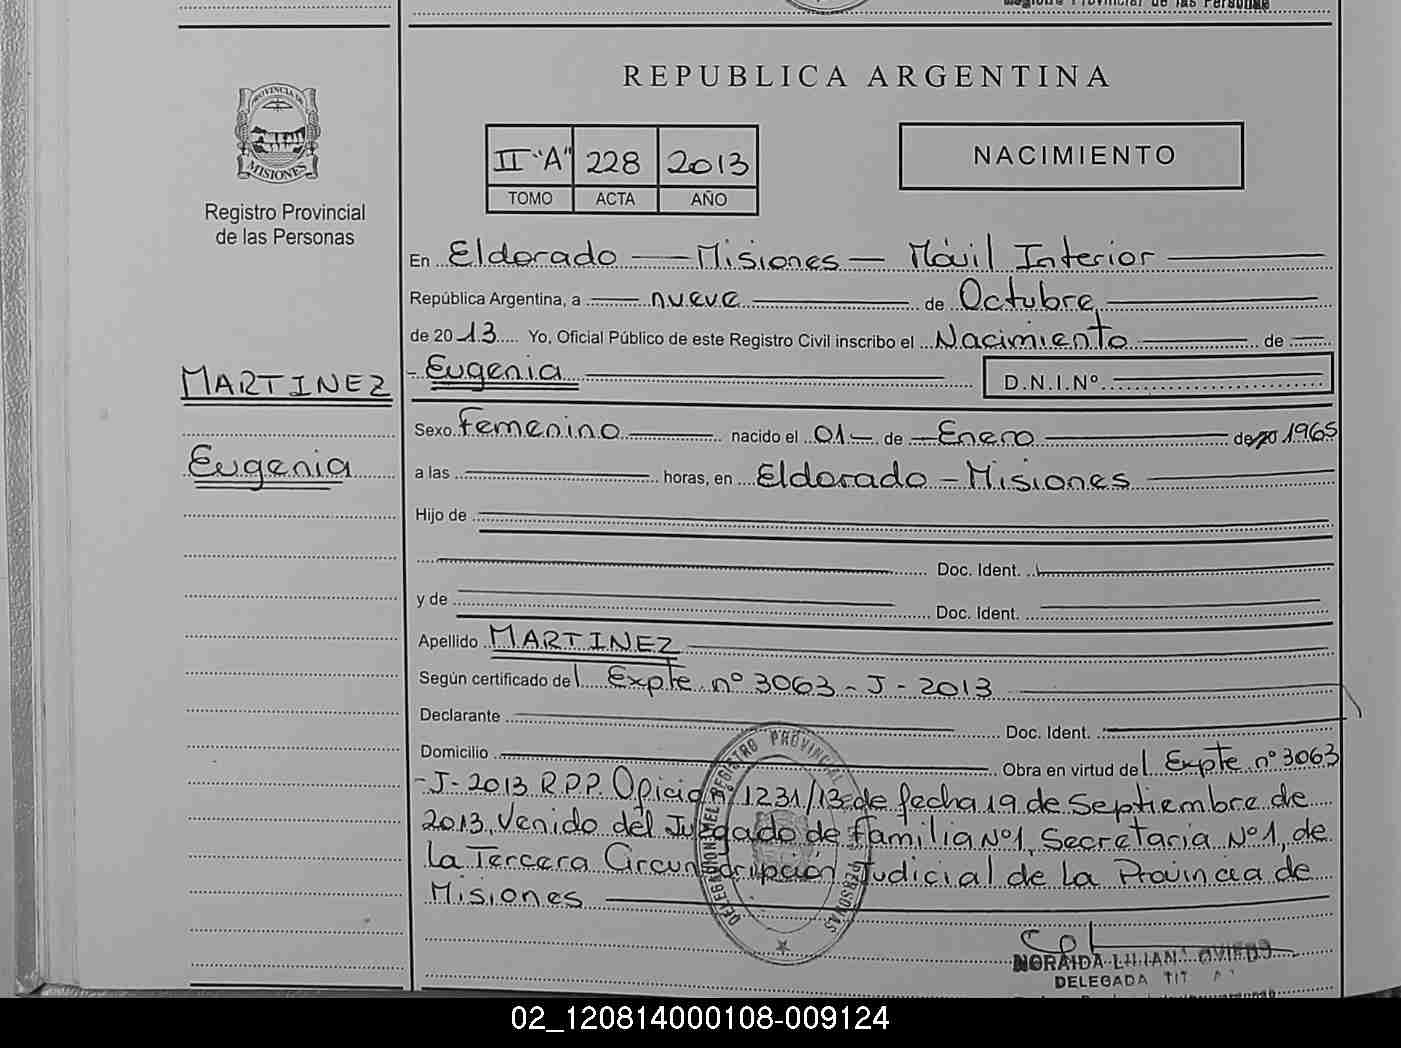 Registro Provincial de las Personas
REPUBLICA ARGENTINA
PROVINCIA DE
MISIONES
Registro Provincial
de las Personas
II "A" 228 2013
TOMO ACTA AÑO
NACIMIENTO
En Eldorado — Misiones — Móvil Interior
República Argentina, a nueve de Octubre
de 2013 Yo, Oficial Público de este Registro Civil inscribo el Nacimiento de
Eugenia D.N.I.Nº
MARTINEZ
Sexo Femenino nacido el 01 de Enero de 1965
Eugenia
a las horas, en Eldorado - Misiones
Hijo de
Doc. Ident.
y de
Doc. Ident.
Apellido MARTINEZ
Según certificado del Expte nº 3063 - J - 2013
Declarante Doc. Ident.
Domicilio Obra en virtud del Expte nº 3063
-J-2013 R.P.P. Oficio nº 1231/13 de fecha 19 de Septiembre de
2013, Venido del Juzgado de Familia Nº1, Secretaria Nº1, de
La Tercera Circunscripción Judicial de La Provincia de
Misiones
DELEGACION DEL REGISTRO PROVINCIAL PERSONAS
NORAIDA LILIANA OVIEDO
DELEGADA TIT
02_120814000108-009124